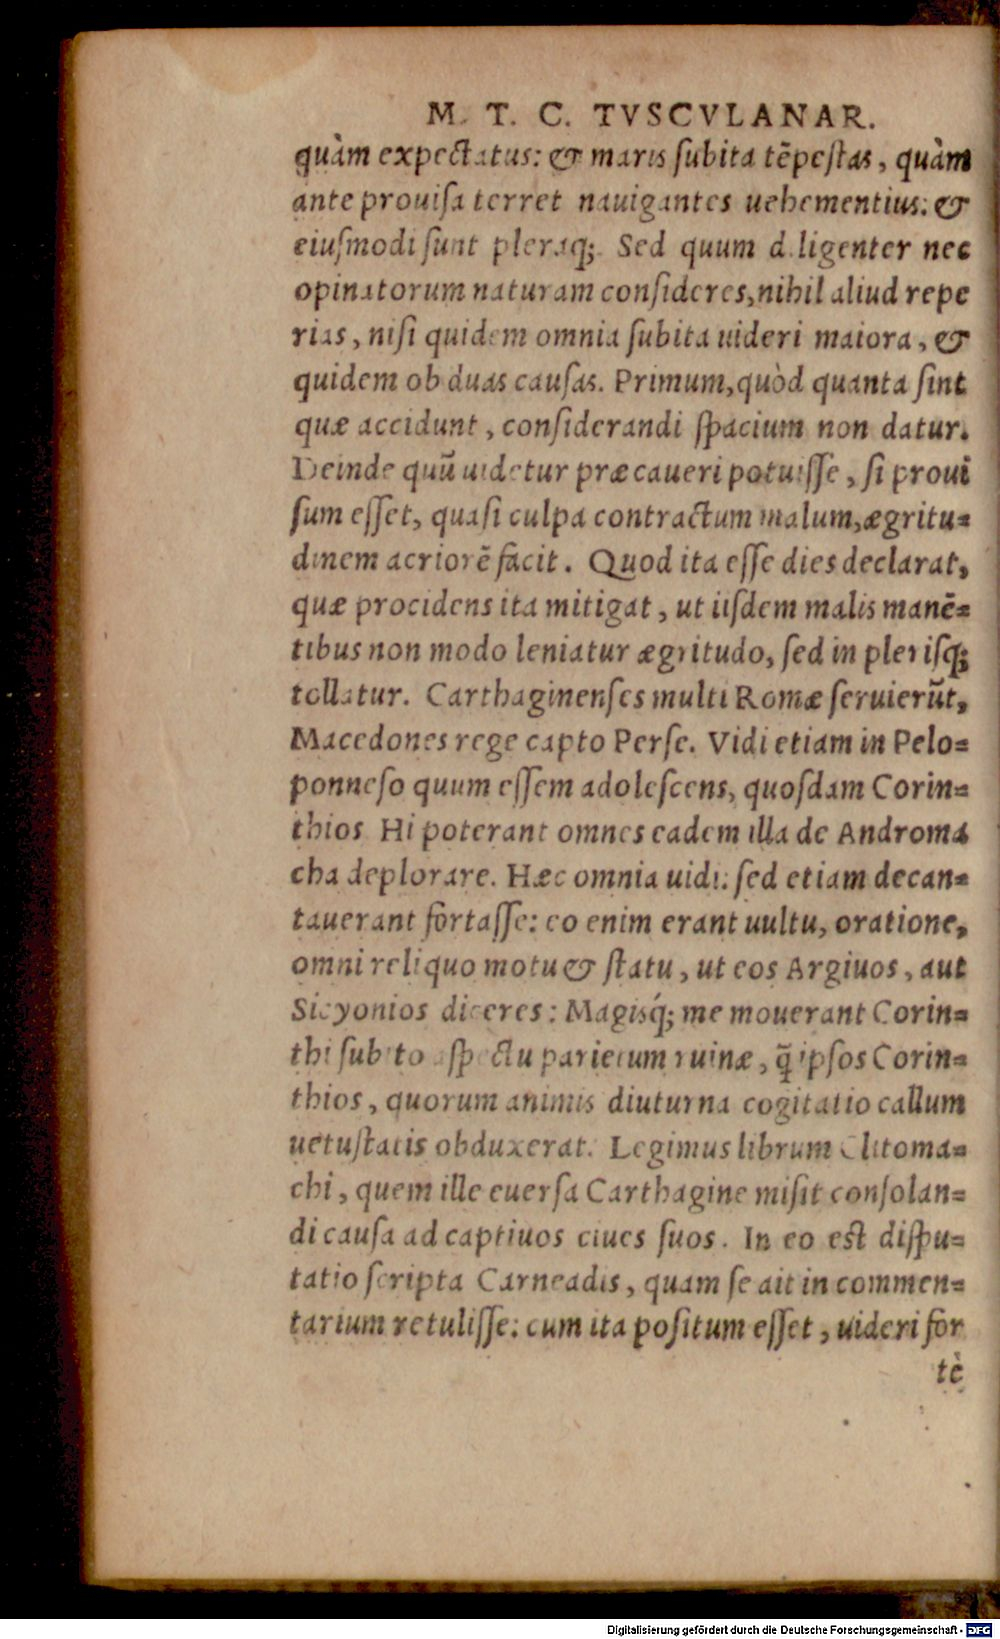 M. T. C. TVSCVLANAR.
quàm expectatus: & maris ſubita tẽpeſtas, quàm
ante prouiſa terret nauigantes uehementius: &
eiuſmodi ſunt pleraq́;. Sed quum diligenter nec
opinatorum naturam conſideres, nihil aliud repe
rias, niſi quidem omnia ſubita uideri maiora, &
quidem ob duas cauſas. Primum, quòd quanta ſint
quæ accidunt, conſiderandi ſpacium non datur.
Deinde quũ uidetur præcaueri potuiſſe, ſi proui
ſum eſſet, quaſi culpa contractum malum, ægritu=
dinem acriorẽ facit. Quod ita eſſe dies declarat,
quæ procidens ita mitigat, ut iiſdem malis manẽ=
tibus non modo leniatur ægritudo, ſed in pleriſq́;
tollatur. Carthaginenſes multi Romæ ſeruierũt,
Macedones rege capto Perſe. Vidi etiam in Pelo=
ponneſo quum eſſem adoleſcens, quoſdam Corin=
thios Hi poterant omnes eadem illa de Androma
cha deplorare. Hæc omnia uidi: ſed etiam decan=
tauerant fortaſſe: eo enim erant uultu, oratione,
omni reliquo motu & ſtatu, ut eos Argiuos, aut
Sicyonios diceres: Magisq́; me mouerant Corin=
thi ſubito aſpectu parietum ruinæ, q̃ ipſos Corin=
thios, quorum animis diuturna cogitatio callum
uetuſtatis obduxerat. Legimus librum Clitoma=
chi, quem ille euerſa Carthagine miſit conſolan=
di cauſa ad captiuos ciues ſuos. In eo eſt diſpu=
tatio ſcripta Carneadis, quam ſe ait in commen=
tarium retuliſſe: cum ita poſitum eſſet, uideri for
tè
Digitalisierung gefördert durch die Deutsche Forschungsgemeinschaft - DFG